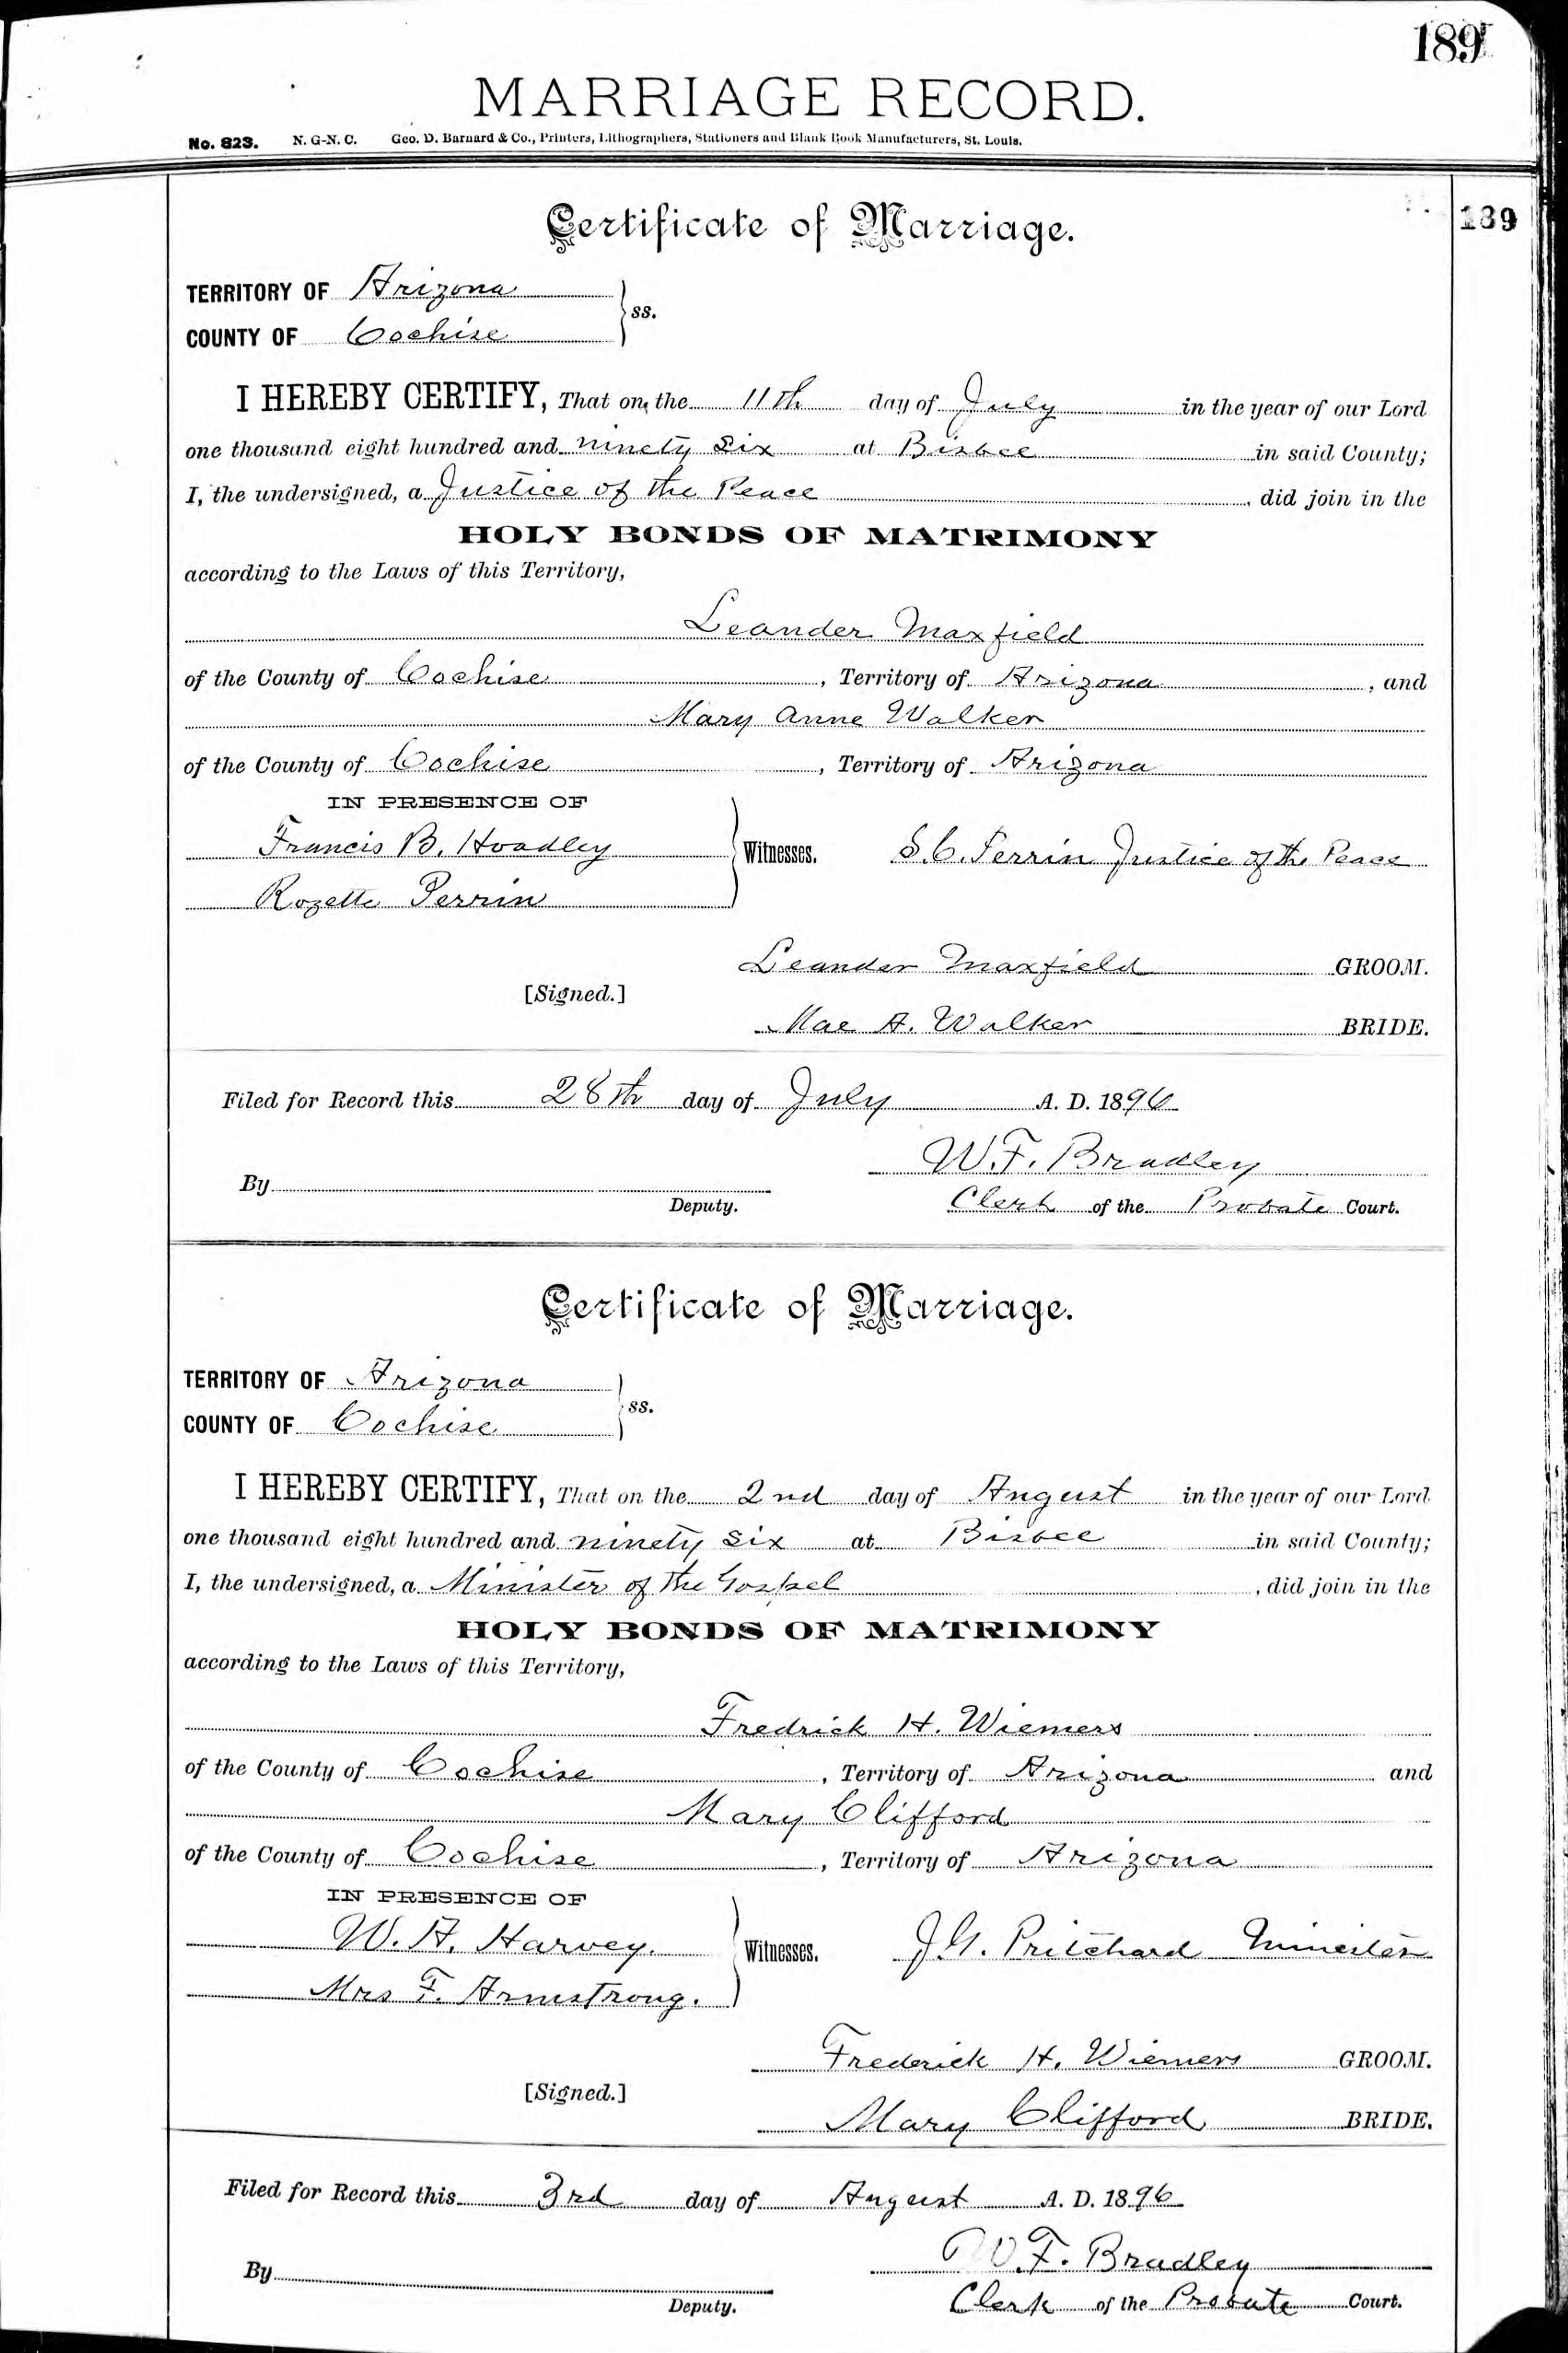 189
MARRIAGE RECORD.
No. 823. N. G-N. C. Geo. D. Barnard & Co., Printers, Lithographers, Stationers and Blank Book Manufacturers, St. Louis.
Certificate of Marriage.
189
TERRITORY OF Arizona
ss.
COUNTY OF Cochise
I HEREBY CERTIFY, That on the 11th day of July in the year of our Lord
one thousand eight hundred and ninety six at Bisbee in said County;
I, the undersigned, a Justice of the Peace, did join in the
HOLY BONDS OF MATRIMONY
according to the Laws of this Territory,
Leander Maxfield
of the County of Cochise, Territory of Arizona, and
Mary Anne Walker
of the County of Cochise, Territory of Arizona
IN PRESENCE OF
Francis B. Hoadley Witnesses. S. C. Perrin Justice of the Peace
Rozette Perrin
Leander Maxfield GROOM.
[Signed.]
Mae A. Walker BRIDE.
Filed for Record this 28th day of July A. D. 1896
W. F. Bradley
By
Deputy. Clerk of the Probate Court.
Certificate of Marriage.
TERRITORY OF Arizona
ss.
COUNTY OF Cochise
I HEREBY CERTIFY, That on the 2nd day of August in the year of our Lord
one thousand eight hundred and ninety six at Bisbee in said County;
I, the undersigned, a Minister of the Gospel, did join in the
HOLY BONDS OF MATRIMONY
according to the Laws of this Territory,
Fredrick H. Wiemers
of the County of Cochise, Territory of Arizona and
Mary Clifford
of the County of Cochise, Territory of Arizona
IN PRESENCE OF
W. A. Harvey. Witnesses. J. G. Pritchard Minister
Mrs F. Armstrong.
Frederick H. Wiemers GROOM.
[Signed.]
Mary Clifford BRIDE.
Filed for Record this 3rd day of August A. D. 1896
W. F. Bradley
By
Deputy. Clerk of the Probate Court.